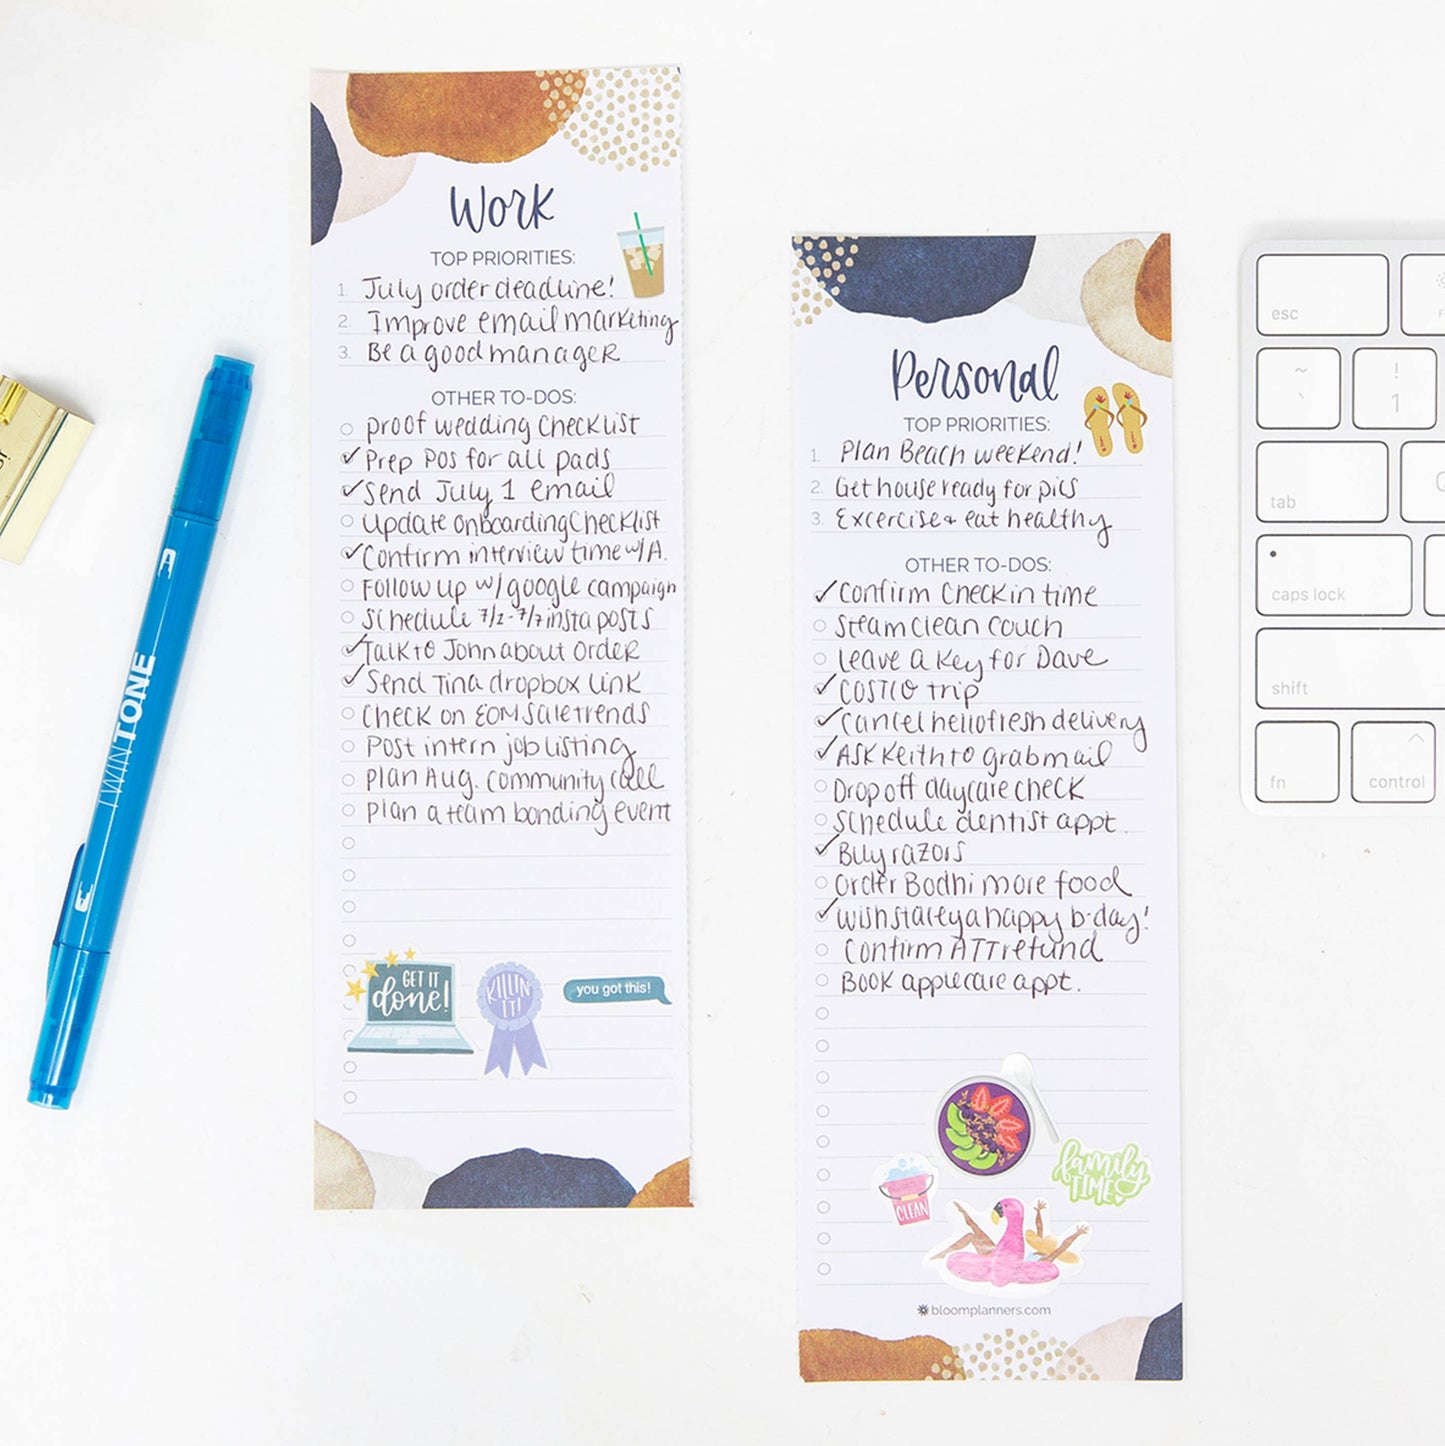 Work
TOP PRIORITIES:
1. July order deadline!
2. Improve email marketing
3. Be a good manager
OTHER TO-DOS:
proof wedding checklist
Prep POs for all pads
Send July 1 email
Update onboarding checklist
Confirm interview time w/A.
Follow up w/google campaign
Schedule 7/2-7/7 insta posts
Talk to John about order
Send Tina dropbox link
Check on EOM sale trends
Post intern job listing
Plan Aug. community call
Plan a team bonding event
GET IT
done!
KILLIN
IT!
you got this!
Personal
TOP PRIORITIES:
1. Plan Beach weekend!
2. Get house ready for pics
3. Excercise + eat healthy
OTHER TO-DOS:
Confirm check in time
Steam clean couch
leave a key for Dave
COSTCO trip
Cancel hellofresh delivery
ASK Keith to grab mail
Drop off daycare check
Schedule dentist appt.
Buy razors
Order Bodhi more food
Wish Stacey a happy b-day!
Confirm ATT refund
Book applecare appt.
family
TIME
CLEAN
bloomplanners.com
TWINTONE
esc
~
`
!
1
tab
caps lock
shift
fn
control